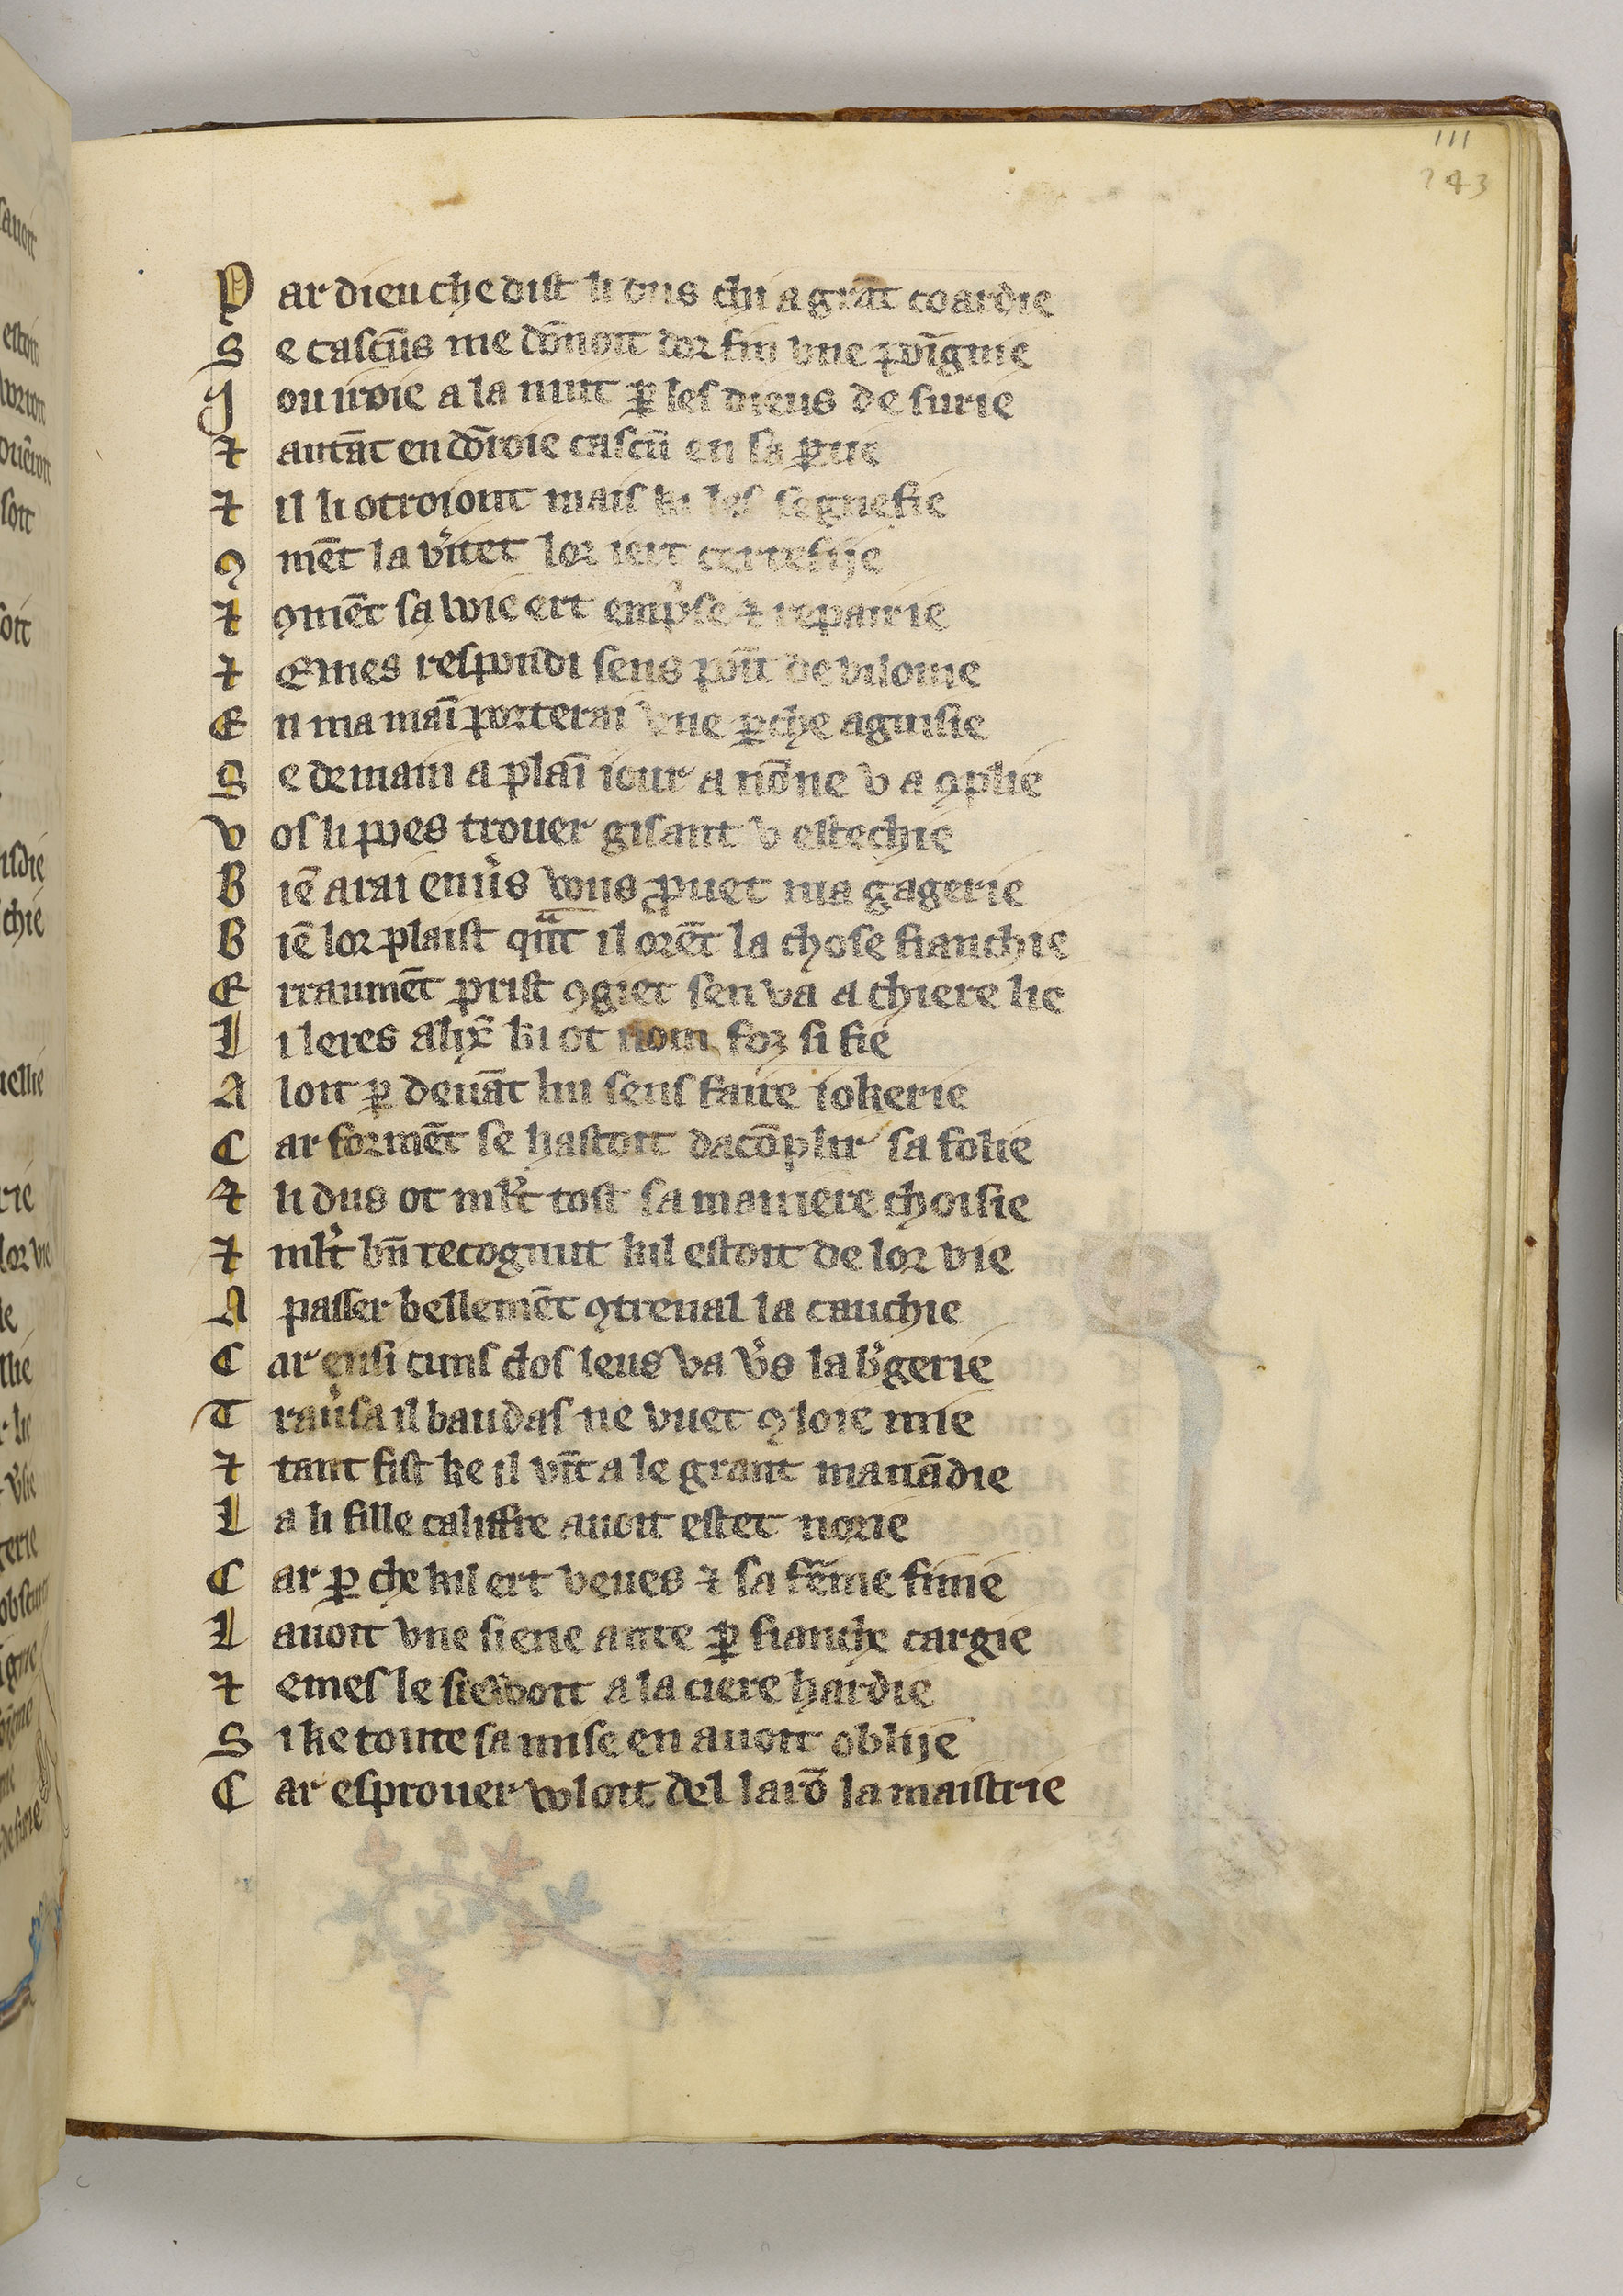 111
243
P ar dieu che dist li dus chi a grāt coardie
S e cascūs me dōnoit dor fin vne poīgnie
J ou iroie a la nuit ꝑ les dieus de surie
⁊ autāt en dōroie cascū en sa ꝑtie
⁊ il li otroiont mais ki les segnefie
ꝯ mēt la v̓itet lor iert certefije
⁊ ꝯmēt sa voie ert emp̓se ⁊ repairie
⁊ Emes respondi sens poīt de vilonie
E n ma maī porterai vne ꝑche aguisie
S e demain a plaī iour a nōne v a ꝯplie
V os li poes trouer gisant v estechie
B iē arai enu̓s vous ꝓuet ma gagerie
B iē lor plaist qᵃ̄nt il orēt la chose fianchie
E rraumēt prist ꝯgiet sen va a chiere lie
L i leres alix̓ ki ot nom forsifie
A loit ꝑ deuāt lui sens faire iokerie
C ar formēt se hastoit dacōplir sa folie
⁊ li dus ot ml̓t tost sa maniere choisie
⁊ ml̓t bn̄ recognut kil estoit de lor vie
A passer bellemēt ꝯtreual la cauchie
C ar ensi cuns clos leus va v̓s la b̓gerie
T rau̓sa il baudas ne vuet ꝯloie mie
⁊ tant fist ke il vīt a le grant manādie
L a li fille califfre auoit estet norie
C ar ꝑ che kil ert veues ⁊ sa fēme finie
L auoit vne siene ante ꝑ fianche cargie
⁊ emes le siewoit a la ciere hardie
S i ke toute sa mise en auoit oblije
C ar esprouer voloit del larō la maistrie